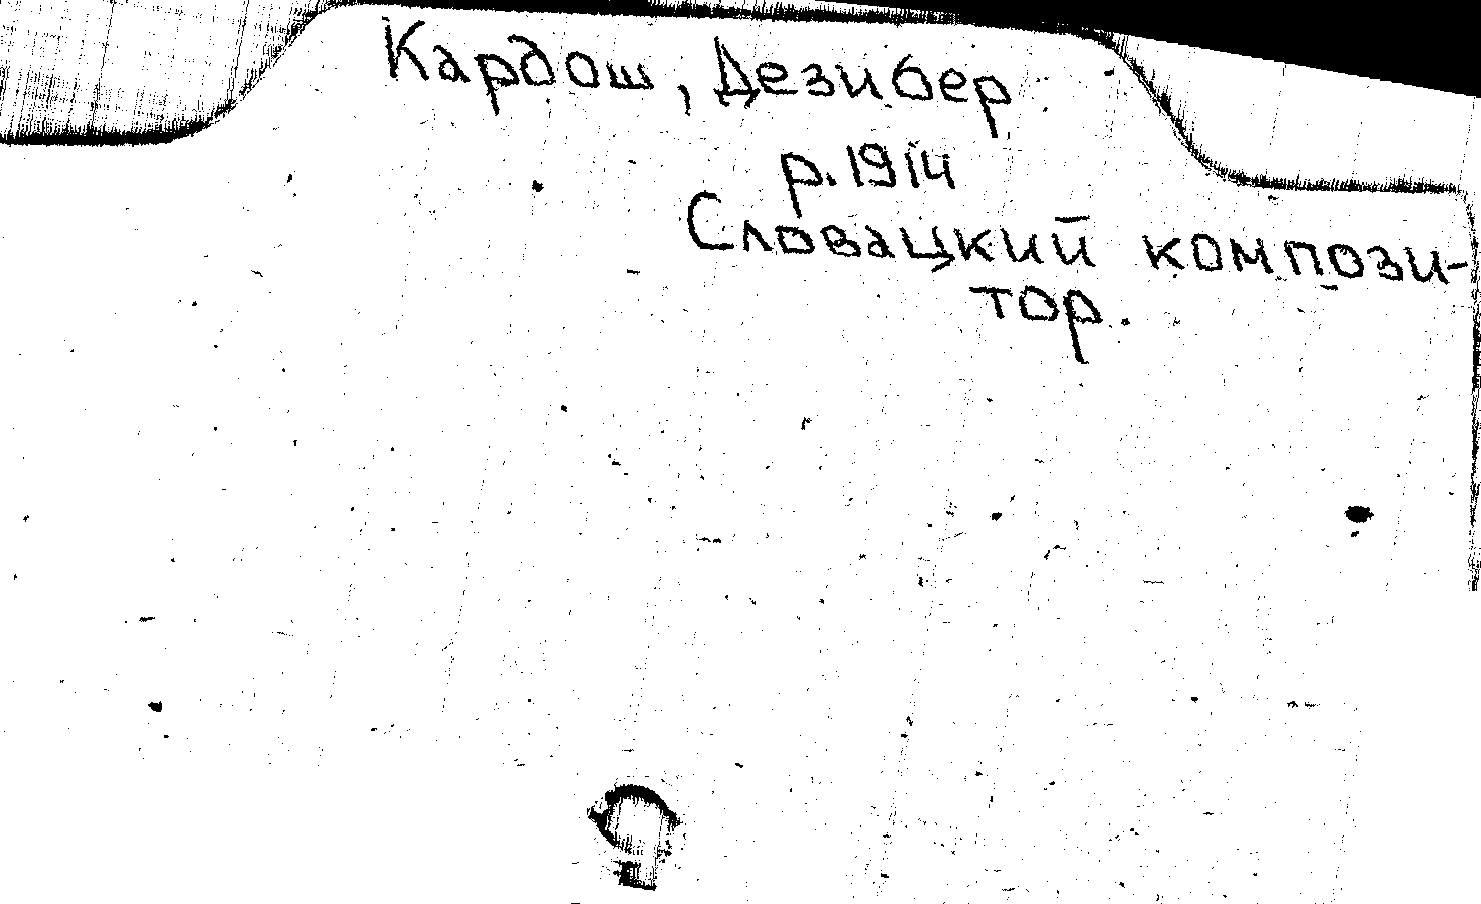 Кардош, Дезибер
р. 1914
Словацкий компози-
тор.